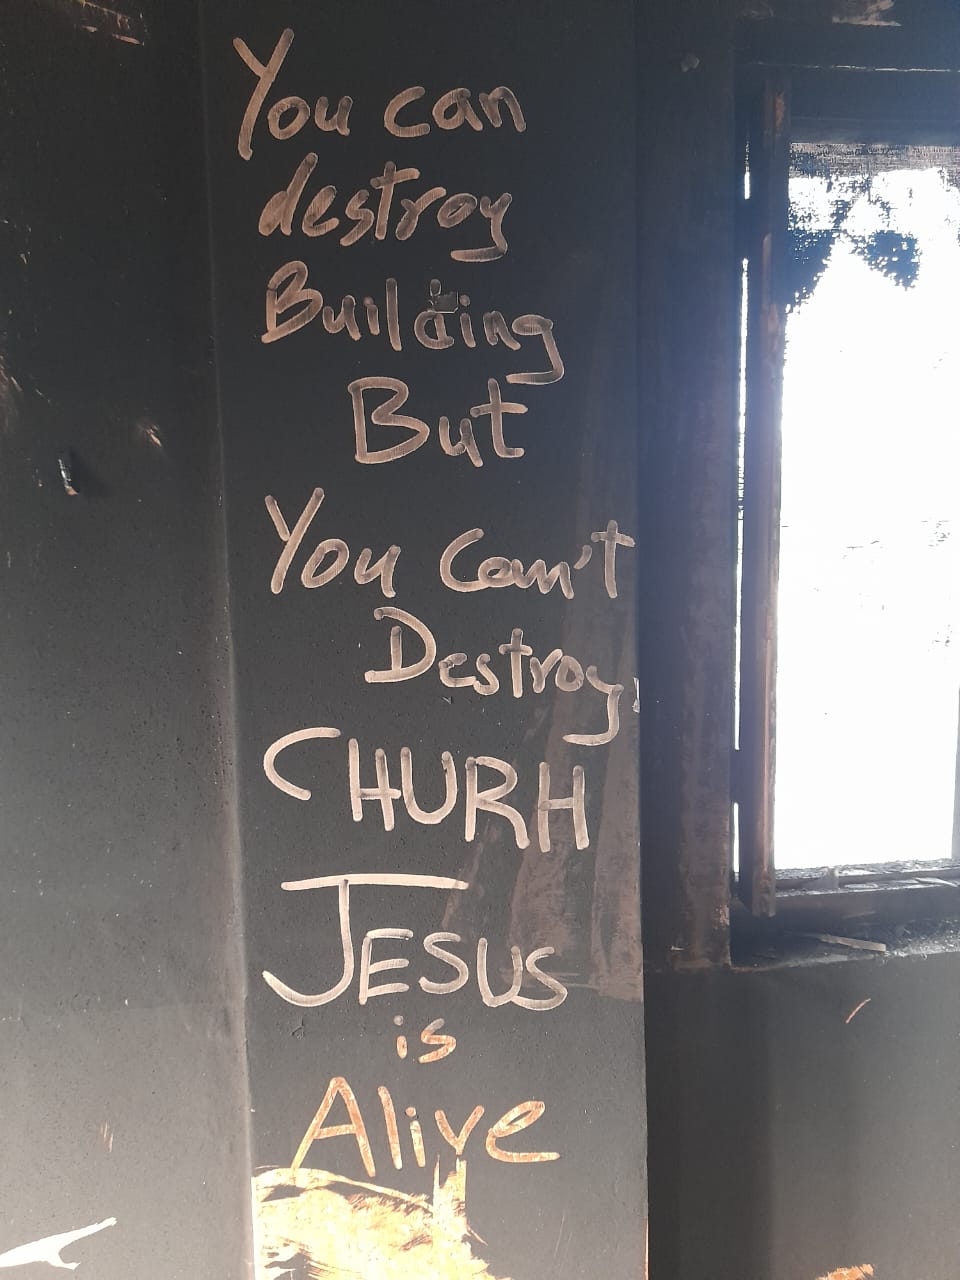 You can
destroy
Building
But
You Can't
Destroy
CHURH
JESUS
is
Alive